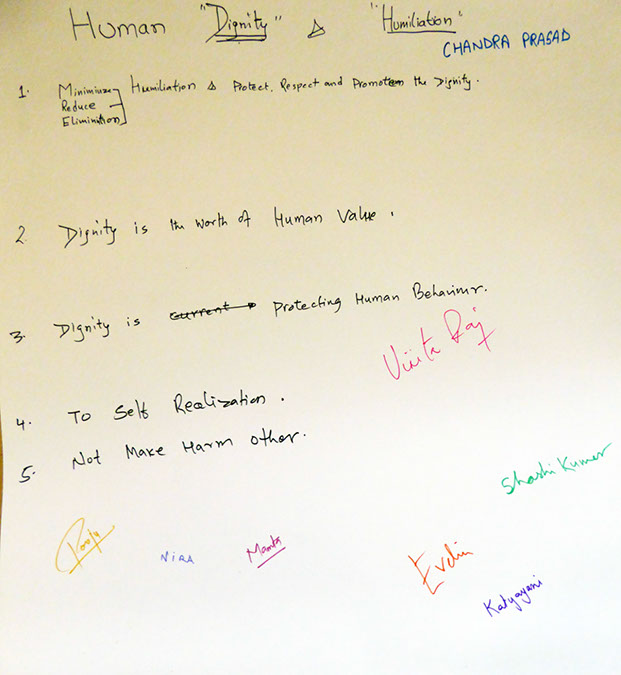 Human "Dignity" & "Humiliation"
CHANDRA PRASAD
1. Minimiunze Humiliation & Protect, Respect and Promote the Dignity.
Reduce
Elimination
2. Dignity is the Worth of Human Value.
3. Dignity is current Protecting Human Behaviour.
Vinita Raj
4. To Self Realization.
5. Not Make Harm other.
Shashi Kumar
NIRA
Mamta
Evelin
Katyayani